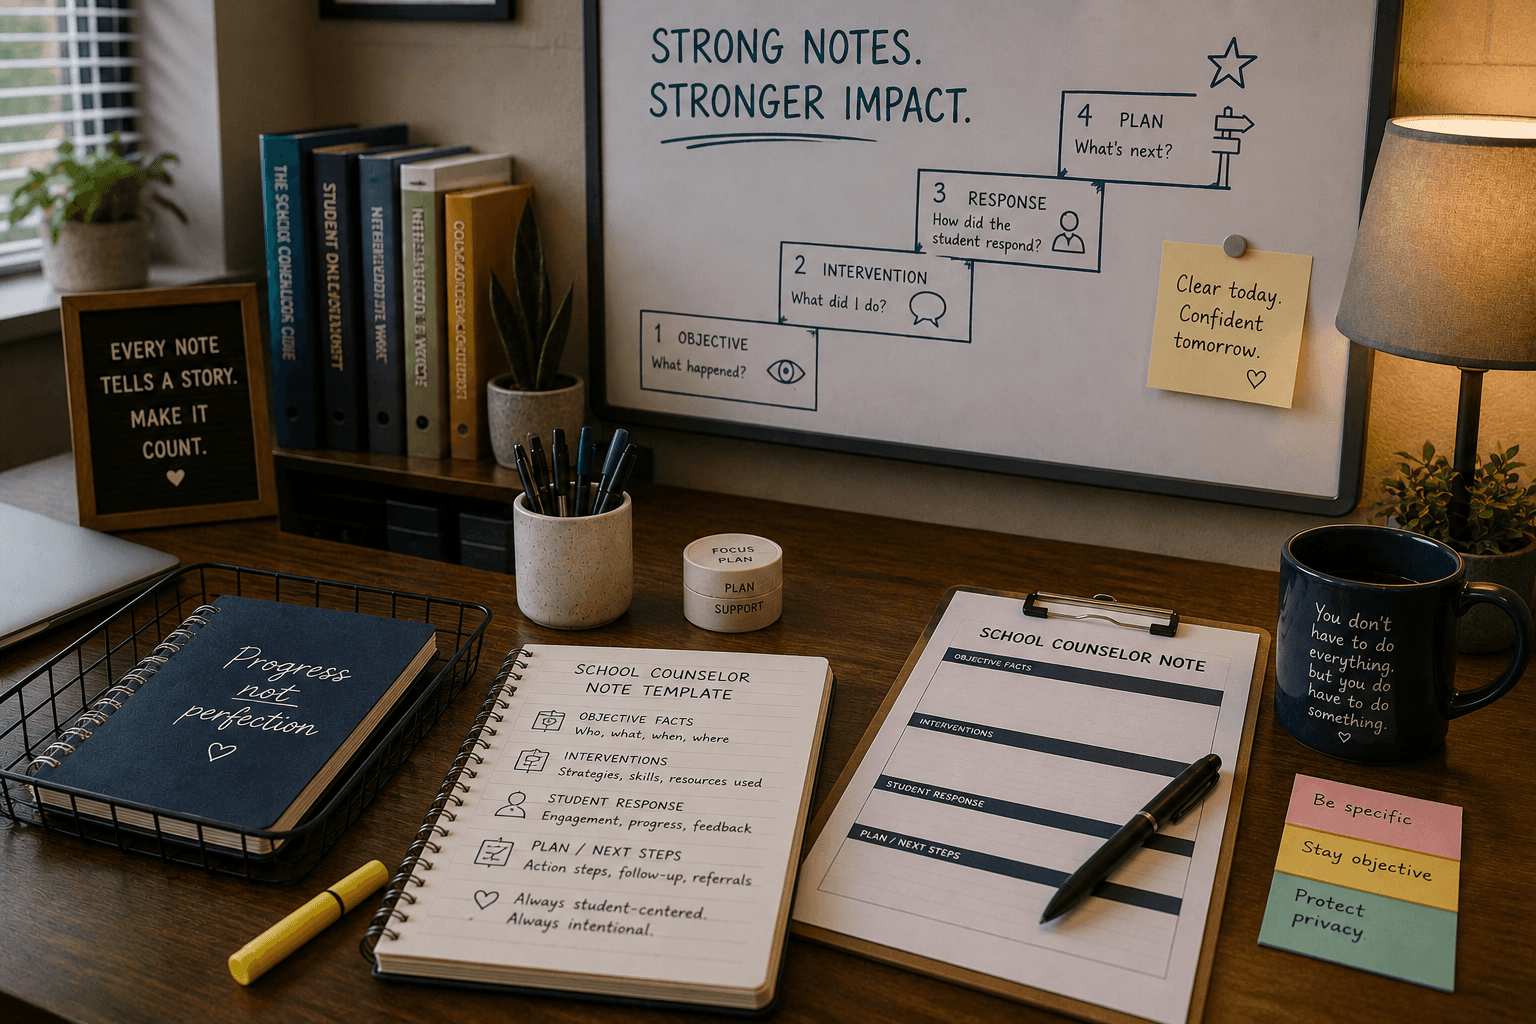 STRONG NOTES.
STRONGER IMPACT.
4 PLAN
What's next?
3 RESPONSE
How did the
student respond?
2 INTERVENTION
What did I do?
1 OBJECTIVE
What happened?
Clear today.
Confident
tomorrow.
EVERY NOTE
TELLS A STORY.
MAKE IT
COUNT.
THE SCHOOL
STUDENT
FOCUS
PLAN
PLAN
SUPPORT
Progress
not
perfection
SCHOOL COUNSELOR
NOTE TEMPLATE
OBJECTIVE FACTS
Who, what, when, where
INTERVENTIONS
Strategies, skills, resources used
STUDENT RESPONSE
Engagement, progress, feedback
PLAN / NEXT STEPS
Action steps, follow-up, referrals
Always student-centered.
Always intentional.
SCHOOL COUNSELOR NOTE
OBJECTIVE FACTS
INTERVENTIONS
STUDENT RESPONSE
PLAN / NEXT STEPS
You don't
have to do
everything.
but you do
have to do
something.
Be specific
Stay objective
Protect
privacy.